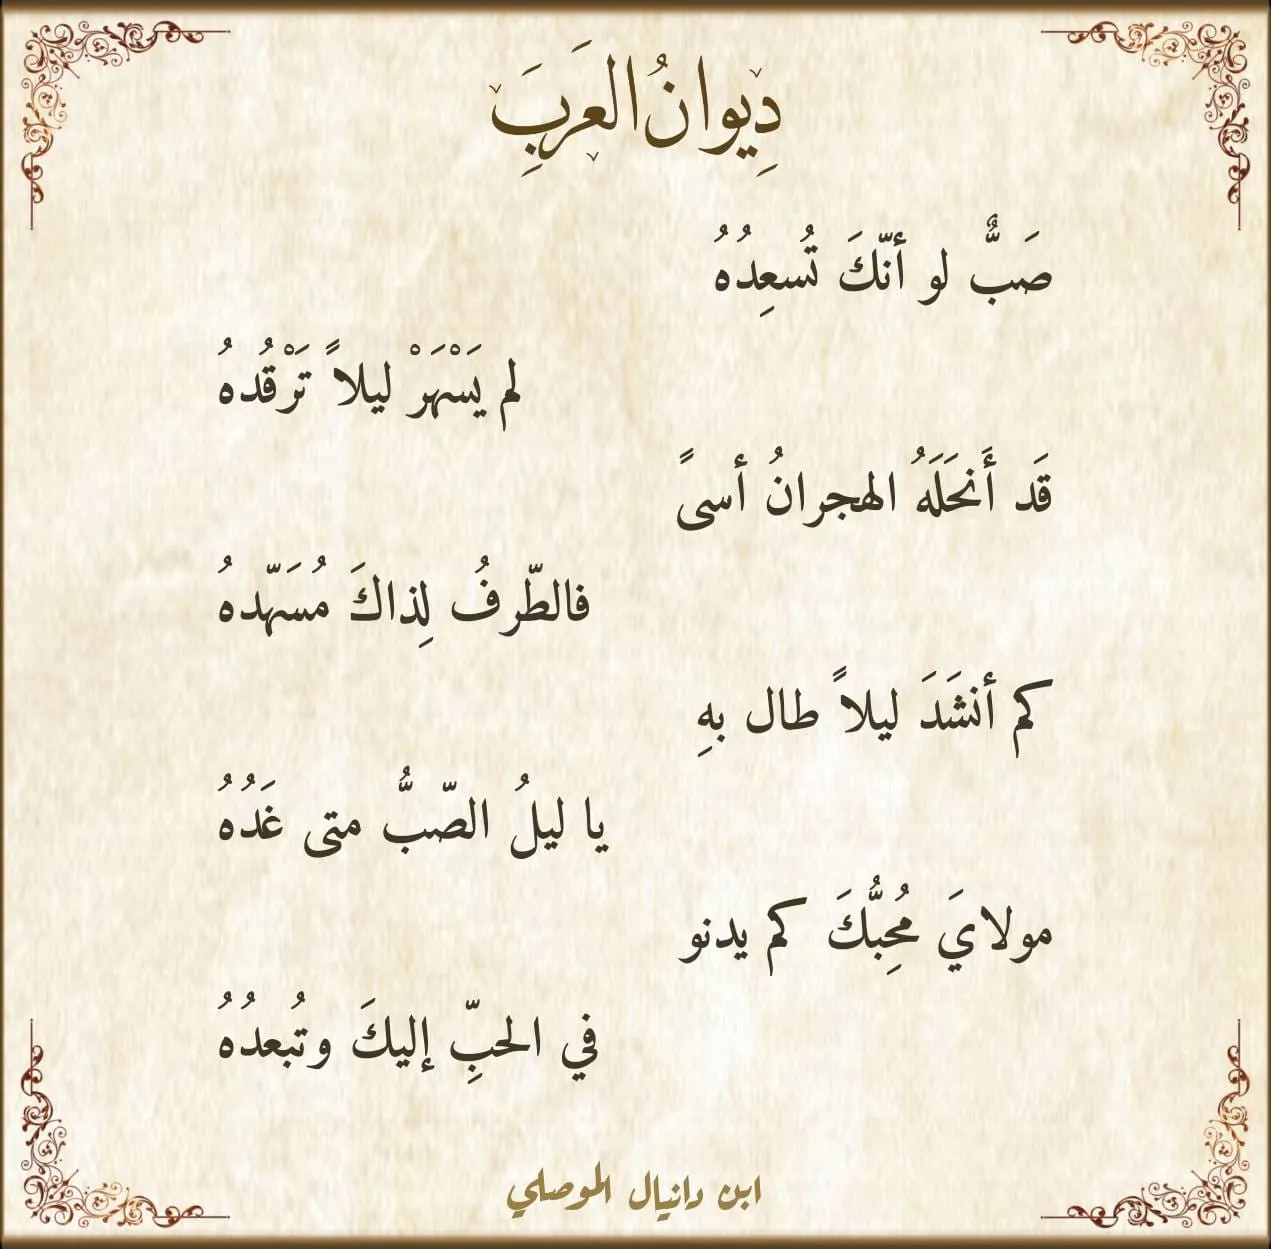 دِيوانُ العَربِ
صَبٌّ لو أنّكَ تُسعِدُهُ
لم يَسْهَرْ ليلاً تَرْقُدُهُ
قَد أَنحَلَهُ الهجرانُ أسىً
فالطّرفُ لِذاكَ مُسَهّدهُ
كم أنشَدَ ليلاً طال بهِ
يا ليلُ الصّبُّ متى غَدُهُ
مولايَ مُحِبُّكَ كم يدنو
في الحبِّ إليكَ وتُبعدُهُ
ابن دانيال الموصلي